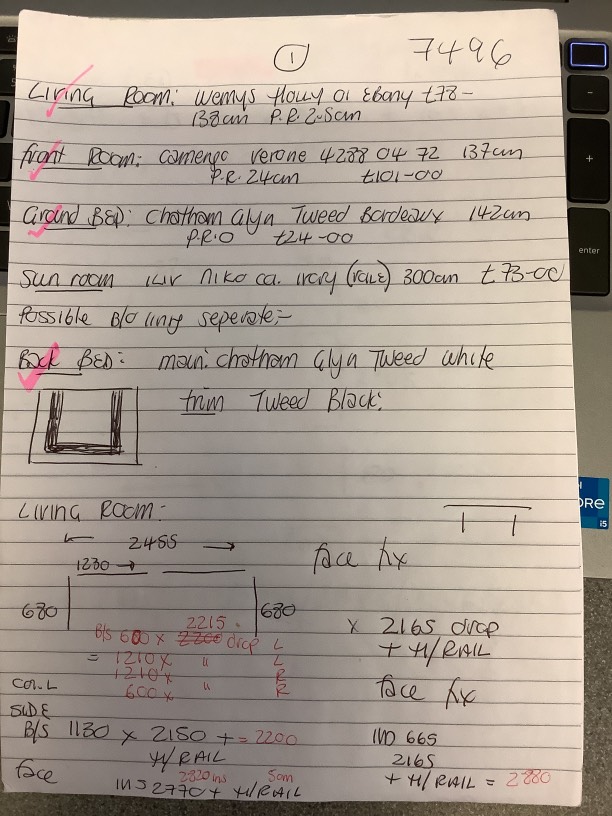 1
7496
Living Room: Wemys Holly 01 Ebony £78-
138cm P.R. 2.5cm
Front Room: Camengo Verone 4288 04 72 137cm
P.R. 24cm £101-00
Grand BED: Chatham Glyn Tweed Bordeaux 142cm
P.R.0 £24-00
Sun room Niko ca. Ivory 300cm £73-00
Possible B/O seperate:-
Back BED: main: Chatham Glyn Tweed White
trim Tweed Black:
Living Room:-
← 2455 →
1230 →
face fix
680
680
2215.
B/S 600 x 2200 drop L
= 1210 x " L
1210 x R
600 x " R
x 2165 drop
+ H/RAIL
face fix
CON. L
SIDE
B/S 1130 x 2150 + = 2200
H/RAIL
IND 665
2165
+ H/RAIL = 2280
face
2820 ins 5cm
INS 2770 + H/RAIL
enter
CORE
i5